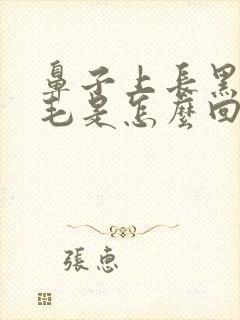 鼻子上長黑
毛是怎麼回
張惠